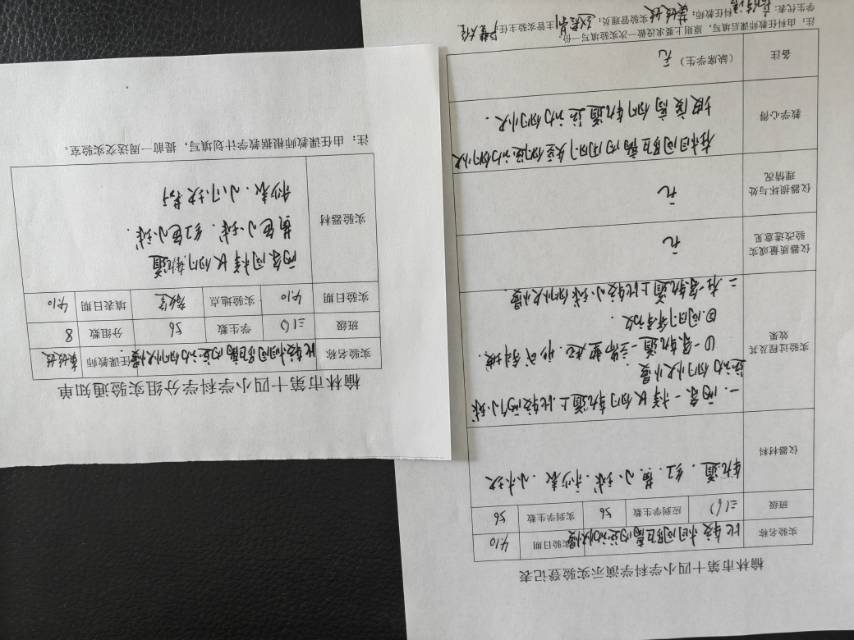 榆林市第十四小学科学分组实验通知单
实验名称 比较相同距离内运动的快慢 任课教师
班级 三(6) 学生数 56 分组数 8
实验日期 4.10 实验地点 教室 填表日期 4.10
实验器材
两条同样长的轨道
黄色小球、红色小球、
秒表、小木块
注：由任课教师根据教学计划填写，提前一周送交实验室。
榆林市第十四小学科学演示实验登记表
实验名称 比较相同距离内运动的快慢 实验日期 4.10
班级 三(6) 应到学生数 56 实到学生数 56
仪器材料 轨道、红、黄、小球、秒表、小木块
实验过程及其效果
一、两条一样长的轨道上比较两个小球
运动的快慢
①一条轨道一
②同时释放.
二、在一条轨道上比较小球的快慢
仪器质量或实验改进意见 无
仪器损坏与处理情况 无
教学心得
在相同距离内用时短的运动的快
坡度高的轨道运动的快.
备注 (缺席学生) 无
注：由科任教师课后填写，原则上要求没做一次实验填写一份
学生代表： 科任教师： 实验管理员： 主管实验主任